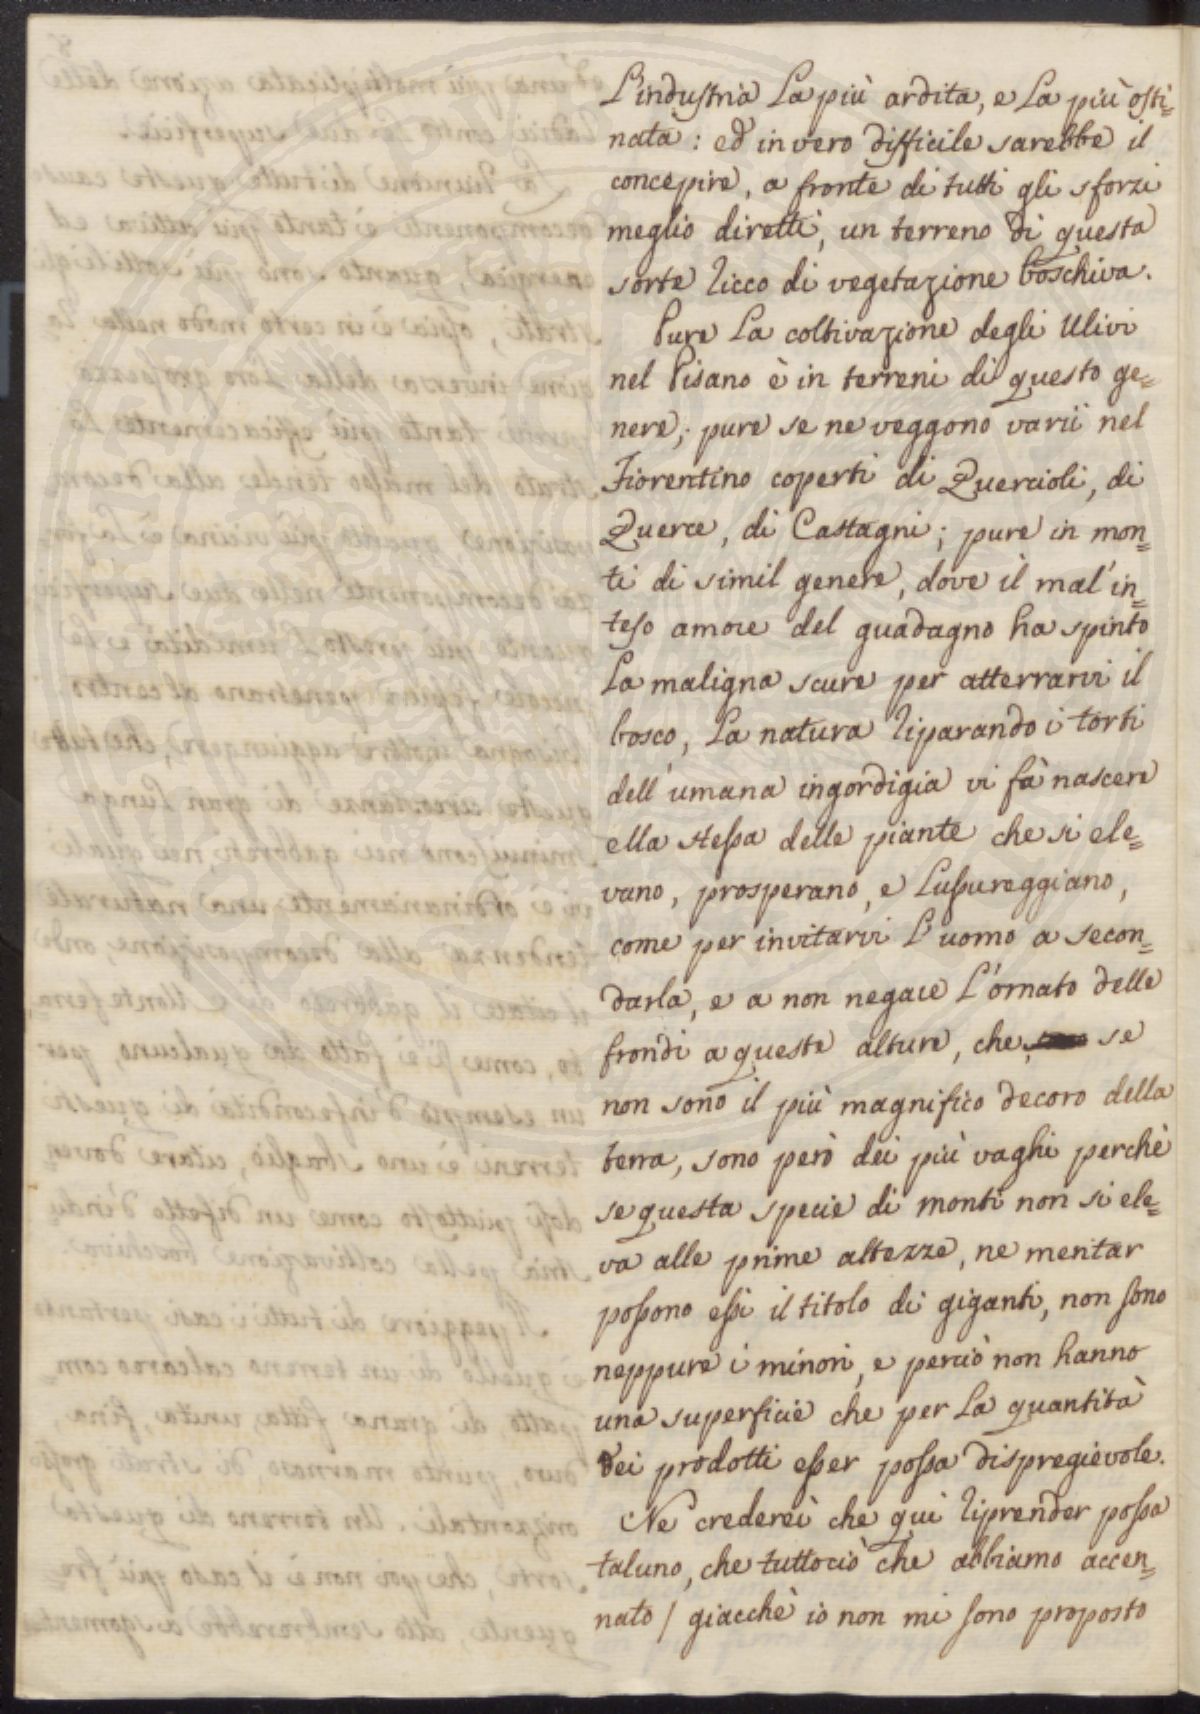 L'industria la più ardita, e la più osti=
nata: ed in vero difficile sarebbe il
concepire, a fronte di tutti gli sforzi
meglio diretti, un terreno di questa
sorte ricco di vegetazione boschiva.
Pure la coltivazione degli Ulivi
nel Pisano è in terreni di questo ge=
nere; pure se ne veggono varii nel
Fiorentino coperti di Quercioli, di
Querce, di Castagni; pure in mon=
ti di simil genere, dove il mal'in=
teso amore del guadagno ha spinto
la maligna scure per atterrarvi il
bosco, la natura riparando i torti
dell'umana ingordigia vi fà nascere
ella stessa delle piante che si ele=
vano, prosperano, e lussureggiano,
come per invitarvi l'uomo a secon=
darla, e a non negare l'ornato delle
frondi a queste alture, che, se
non sono il più magnifico decoro della
terra, sono però dei più vaghi perchè
se questa specie di monti non si ele=
va alle prime altezze, ne meritar
possono essi il titolo di giganti, non sono
neppure i minori, e perciò non hanno
una superficie che per la quantità
dei prodotti esser possa dispregievole.
Ne crederei che quì riprender possa
taluno, che tuttociò che abbiamo accen=
nato / giacchè io non mi sono proposto